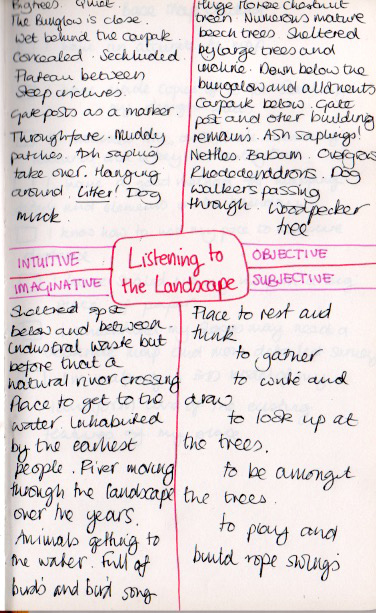 Big trees. Quiet.
The Bunglow is close.
Wet behind the carpark.
Concealed. Sechluded.
Plateau between
Steep inclines.
Gateposts as a marker.
Throughfare. Muddy
patches. Ash sapling
take over. Hanging
around. Litter! Dog
muck.
Huge Horse chestnut
treen. Numerous mature
beech trees. Sheltered
by large trees and
incline. Down below the
bungalow and allotments
Carpark below. Gate
post and other building
remains. Ash saplings!
Nettles. Balsam. Overgrown
Rhododendrons. Dog
walkers passing
through. Woodpecker
tree
INTUITIVE
IMAGINATIVE
Listening to
the Landscape
OBJECTIVE
SUBJECTIVE
Sheltered spot
below and between
industrial waste but
before that a
natural river crossing
Place to get to the
water. Inhabited
by the earliest
people. River moving
through the landscape
over the years.
Animals getting to
the water. Full of
birds and bird song
Place to rest and
think
to gather
to write and
draw
to look up at
the trees.
to be amongst
the trees.
to play and
build rope swings